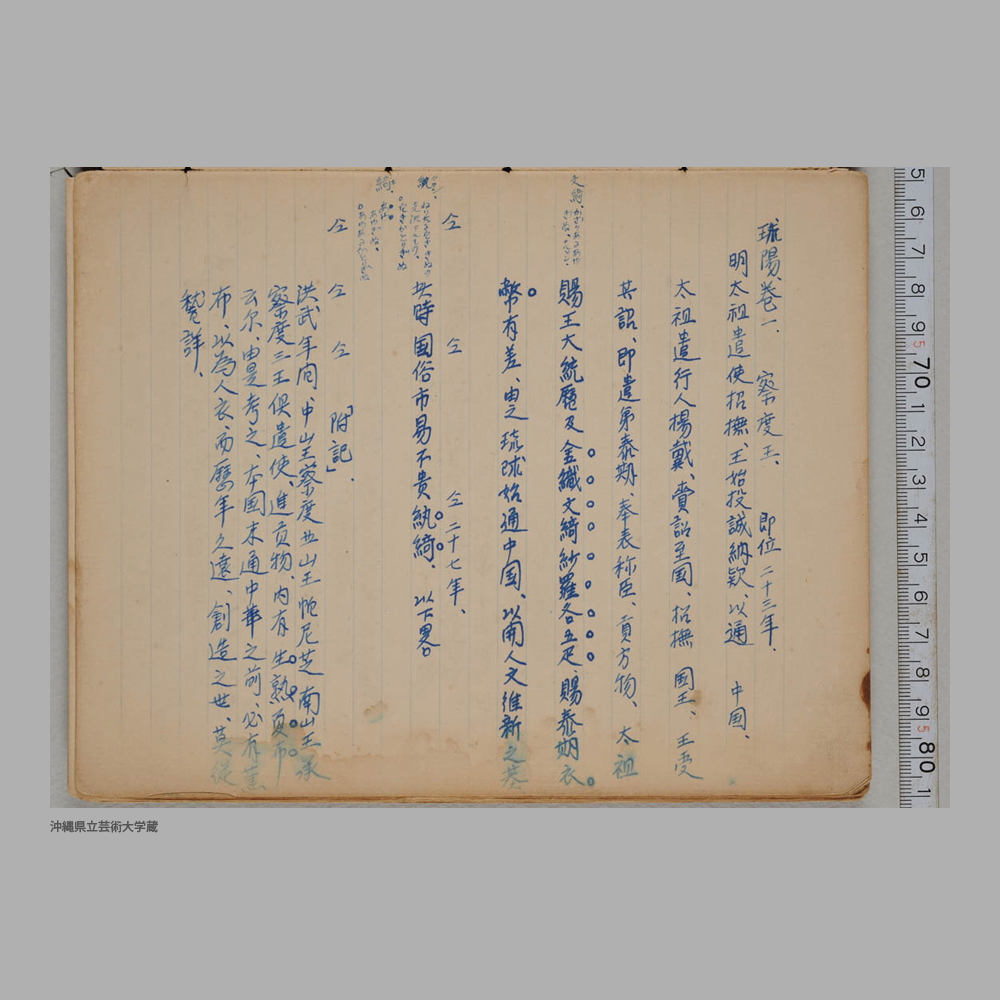 琉陽、巻一、　察度王、　即位二十三年、
明太祖遣使招撫、王始投誠納欵、以通　中国、
太祖遣行人楊載、賚詔至国、招撫　国王、王受
其詔、即遣弟泰期、奉表称臣、貢方物、太祖
文綺、
賜王大統暦及金織文綺紗羅各五疋、賜泰期衣
幣有差、由之琉球始通中国、以開人文維新之基
仝　仝　仝二十七年、
紈、
其時国俗市易不貴紈綺、以下畧
綺、
仝　仝　仝　「附記」、
洪武年间、中山王察度　山王帕尼芝　南山王承
察度三王倶遣使、進貢物、内有生熟夏布
云尓、由是考之、本国未通中華之前、必有蕉
布、以為人衣、而歴年久遠、創造之世、莫従
詳、
5 6 7 8 9 70 1 2 3 4 5 6 7 8 9 80
沖縄県立芸術大学蔵